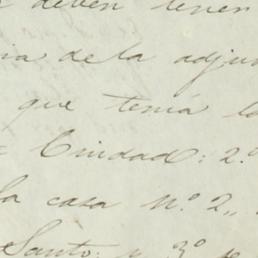 deben tener
ia de la adjun
que tenía la
Ciudad: 2.º
la casa N.º 2,,
Santo: y 3.º